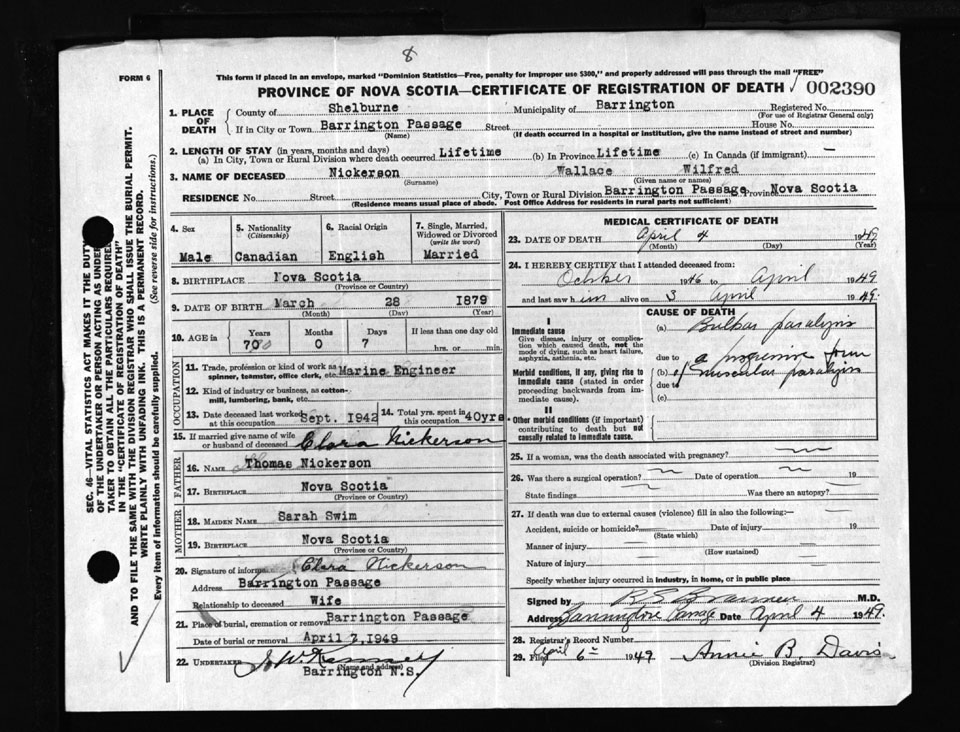 8
FORM 6
This form if placed in an envelope, marked "Dominion Statistics—Free, penalty for improper use $300," and properly addressed will pass through the mail "FREE"
PROVINCE OF NOVA SCOTIA—CERTIFICATE OF REGISTRATION OF DEATH √ 002390
1. PLACE OF DEATH
County of Shelburne Municipality of Barrington Registered No.
(For use of Registrar General only)
If in City or Town Barrington Passage Street House No.
(Name) (If death occurred in a hospital or institution, give the name instead of street and number)
2. LENGTH OF STAY (in years, months and days)
(a) In City, Town or Rural Division where death occurred Lifetime (b) In Province Lifetime (c) In Canada (if immigrant) —
3. NAME OF DECEASED Nickerson Wallace Wilfred
(Surname) (Given name or names)
RESIDENCE No. Street City, Town or Rural Division Barrington Passage Province Nova Scotia
(Residence means usual place of abode. Post Office Address for residents in rural parts not sufficient)
SEC. 46—VITAL STATISTICS ACT MAKES IT THE DUTY
OF THE UNDERTAKER OR PERSON ACTING AS UNDER-
TAKER TO OBTAIN ALL THE PARTICULARS REQUIRED
IN THE "CERTIFICATE OF REGISTRATION OF DEATH"
AND TO FILE THE SAME WITH THE DIVISION REGISTRAR WHO SHALL ISSUE THE BURIAL PERMIT.
WRITE PLAINLY WITH UNFADING INK. THIS IS A PERMANENT RECORD.
Every item of information should be carefully supplied. (See reverse side for instructions.)
4. Sex
Male
5. Nationality
(Citizenship)
Canadian
6. Racial Origin
English
7. Single, Married,
Widowed or Divorced
(write the word)
Married
8. BIRTHPLACE Nova Scotia
(Province or Country)
9. DATE OF BIRTH March 28 1879
(Month) (Day) (Year)
10. AGE in
Years Months Days If less than one day old
70 0 7 hrs. or min.
OCCUPATION
11. Trade, profession or kind of work as Marine Engineer
spinner, teamster, office clerk, etc.
12. Kind of industry or business, as cotton-
mill, lumbering, bank, etc.
13. Date deceased last worked
at this occupation Sept. 1942
14. Total yrs. spent in
this occupation 40yrs.
15. If married give name of wife
or husband of deceased Clara Nickerson
FATHER
16. NAME Thomas Nickerson
17. BIRTHPLACE Nova Scotia
(Province or Country)
MOTHER
18. MAIDEN NAME Sarah Swim
19. BIRTHPLACE Nova Scotia
(Province or Country)
20. Signature of informant Clara Nickerson
Address Barrington Passage
Relationship to deceased Wife
21. Place of burial, cremation or removal Barrington Passage
Date of burial or removal April 7, 1949
22. UNDERTAKER
(Name and address)
Barrington N.S.
MEDICAL CERTIFICATE OF DEATH
23. DATE OF DEATH April 4 1949
(Month) (Day) (Year)
24. I HEREBY CERTIFY that I attended deceased from:
October 1946 to April 1949
and last saw him alive on 3 April 1949.
CAUSE OF DEATH
I
Immediate cause
Give disease, injury or complica-
tion which caused death, not the
mode of dying, such as heart failure,
asphyxia, asthenia, etc.
(a) Bulbar paralysis
due to
Morbid conditions, if any, giving rise to
immediate cause (stated in order
proceeding backwards from im-
mediate cause).
a progressive form
(b) of muscular paralysis
due to
(c)
II
Other morbid conditions (if important)
contributing to death but not
causally related to immediate cause.
25. If a woman, was the death associated with pregnancy?
26. Was there a surgical operation? Date of operation 19
State findings Was there an autopsy?
27. If death was due to external causes (violence) fill in also the following:—
Accident, suicide or homicide? Date of injury 19
(State which)
Manner of injury
(How sustained)
Nature of injury
Specify whether injury occurred in industry, in home, or in public place
Signed by M.D.
Address Barrington Passage Date April 4 1949.
28. Registrar's Record Number
29. Filed April 6th 1949 Annie B. Davis
(Division Registrar)